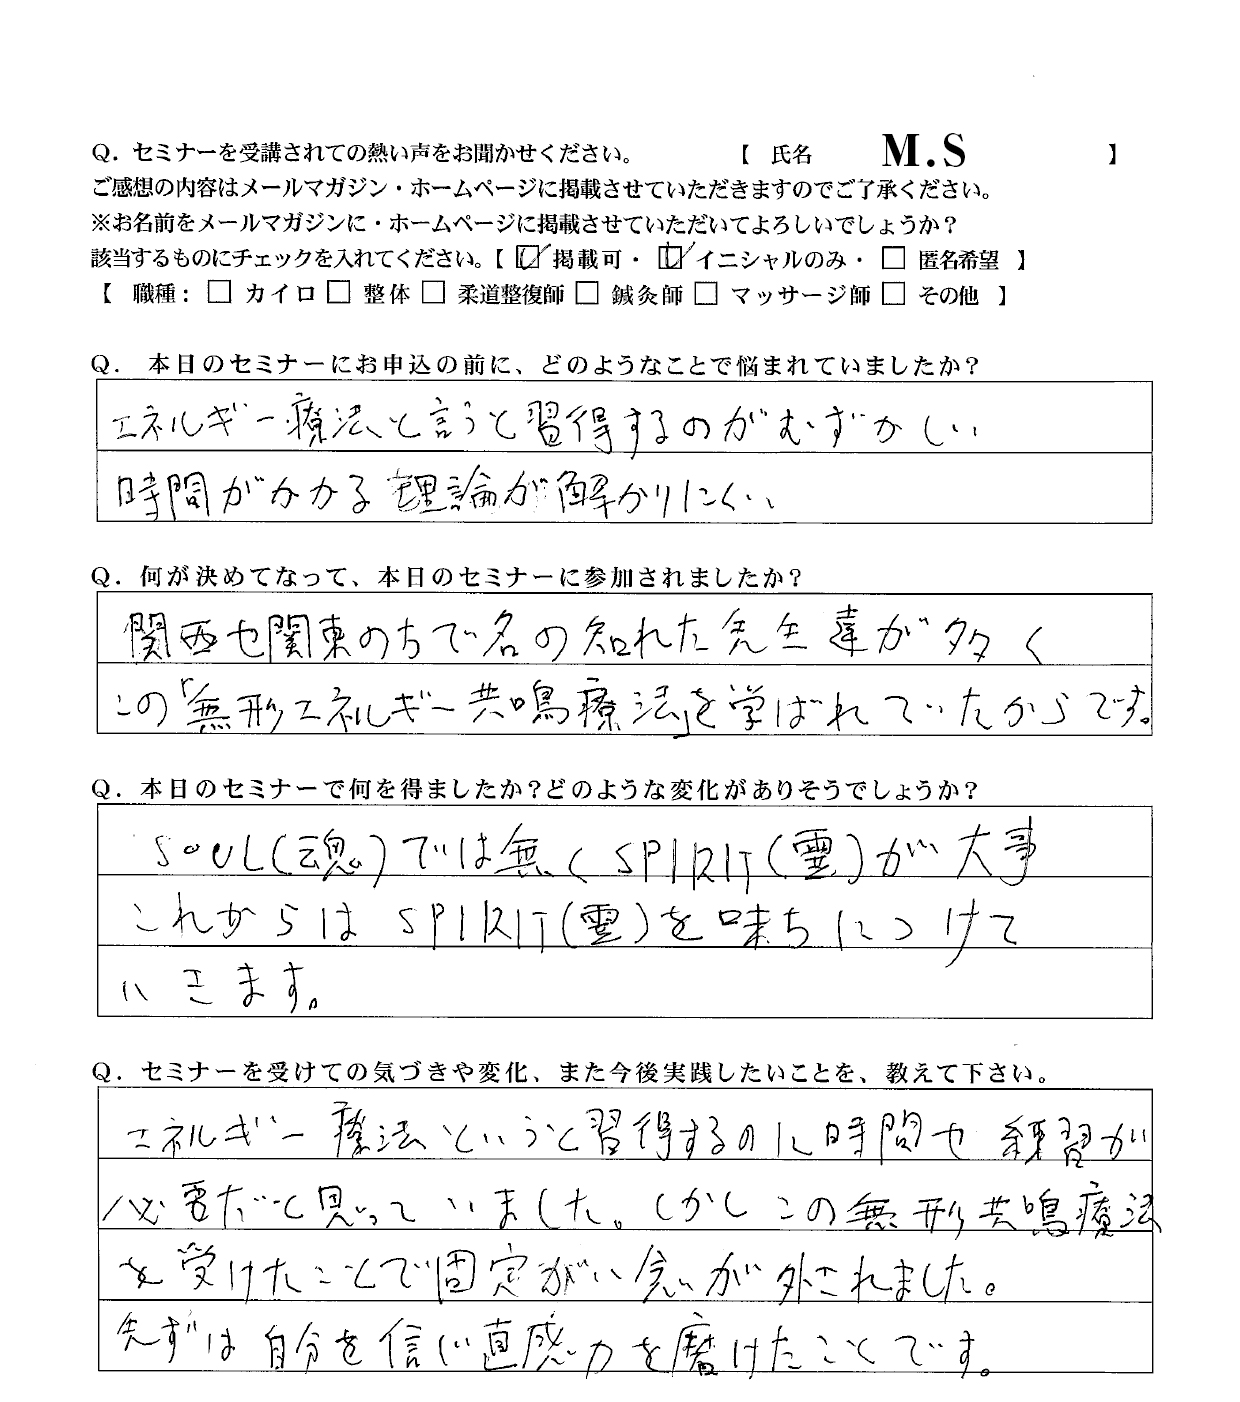 Q．セミナーを受講されての熱い声をお聞かせください。 【 氏名 M.S 】
ご感想の内容はメールマガジン・ホームページに掲載させていただきますのでご了承ください。
※お名前をメールマガジンに・ホームページに掲載させていただいてよろしいでしょうか？
該当するものにチェックを入れてください。【 ☑ 掲載可・ ☑ イニシャルのみ・ □ 匿名希望 】
【 職種： □ カイロ □ 整体 □ 柔道整復師 □ 鍼灸師 □ マッサージ師 □ その他 】
Q． 本日のセミナーにお申込の前に、どのようなことで悩まれていましたか？
エネルギー療法と言うと習得するのがむずかしい
時間がかかる 理論が解かりにくい
Q．何が決めてなって、本日のセミナーに参加されましたか？
関西や関東の方で名の知れた先生達が多く
この「無形エネルギー共鳴療法」を学ばれていたからです。
Q．本日のセミナーで何を得ましたか？どのような変化がありそうでしょうか？
SOUL(魂)では無く SPIRIT(霊)が大事
これからは SPIRIT(霊)を味ちにつけて
いきます。
Q．セミナーを受けての気づきや変化、また今後実践したいことを、教えて下さい。
エネルギー療法というと習得するのに時間や練習が
必要だと思っていました。しかしこの無形共鳴療法
を受けたことで固定がい念が外されました。
先ずは自分を信じ直感力を磨けたことです。